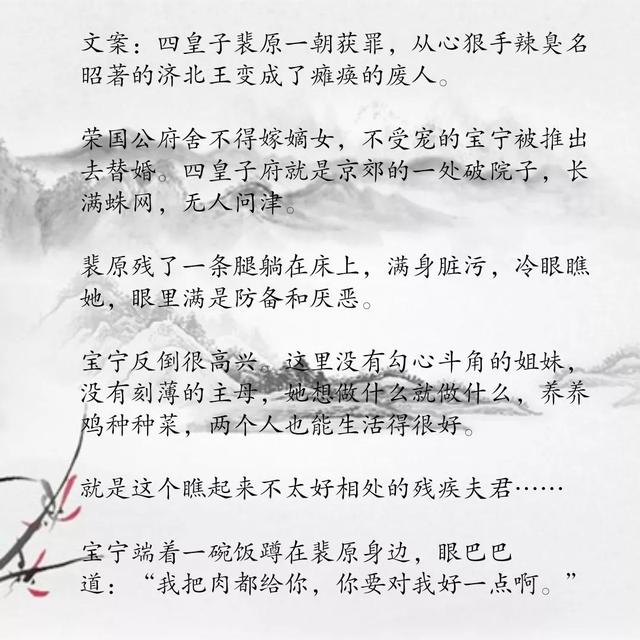 文案：四皇子裴原一朝获罪，从心狠手辣臭名
昭著的济北王变成了瘫痪的废人。
荣国公府舍不得嫁嫡女，不受宠的宝宁被推出
去替婚。四皇子府就是京郊的一处破院子，长
满蛛网，无人问津。
裴原残了一条腿躺在床上，满身脏污，冷眼瞧
她，眼里满是防备和厌恶。
宝宁反倒很高兴。这里没有勾心斗角的姐妹，
没有刻薄的主母，她想做什么就做什么，养养
鸡种种菜，两个人也能生活得很好。
就是这个瞧起来不太好相处的残疾夫君……
宝宁端着一碗饭蹲在裴原身边，眼巴巴
道：“我把肉都给你，你要对我好一点啊。”